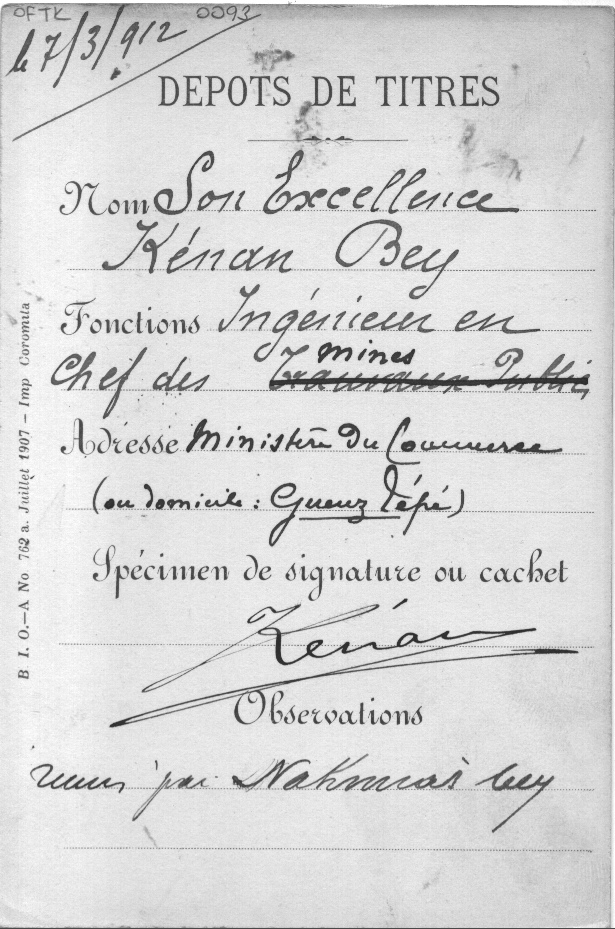 OFTK 0093
le 7/3/912
DEPOTS DE TITRES
Nom Son Excellence
Kénan Bey
Fonctions Ingénieur en
mines
Chef des Travaux Public
Adresse Ministère du Commerce
(ou domicile : Gueuz Tépé)
Spécimen de signature ou cachet
Kenan
Observations
remis par bey
B I. O.—A No 762 a. Juillet 1907 — Imp Coromila